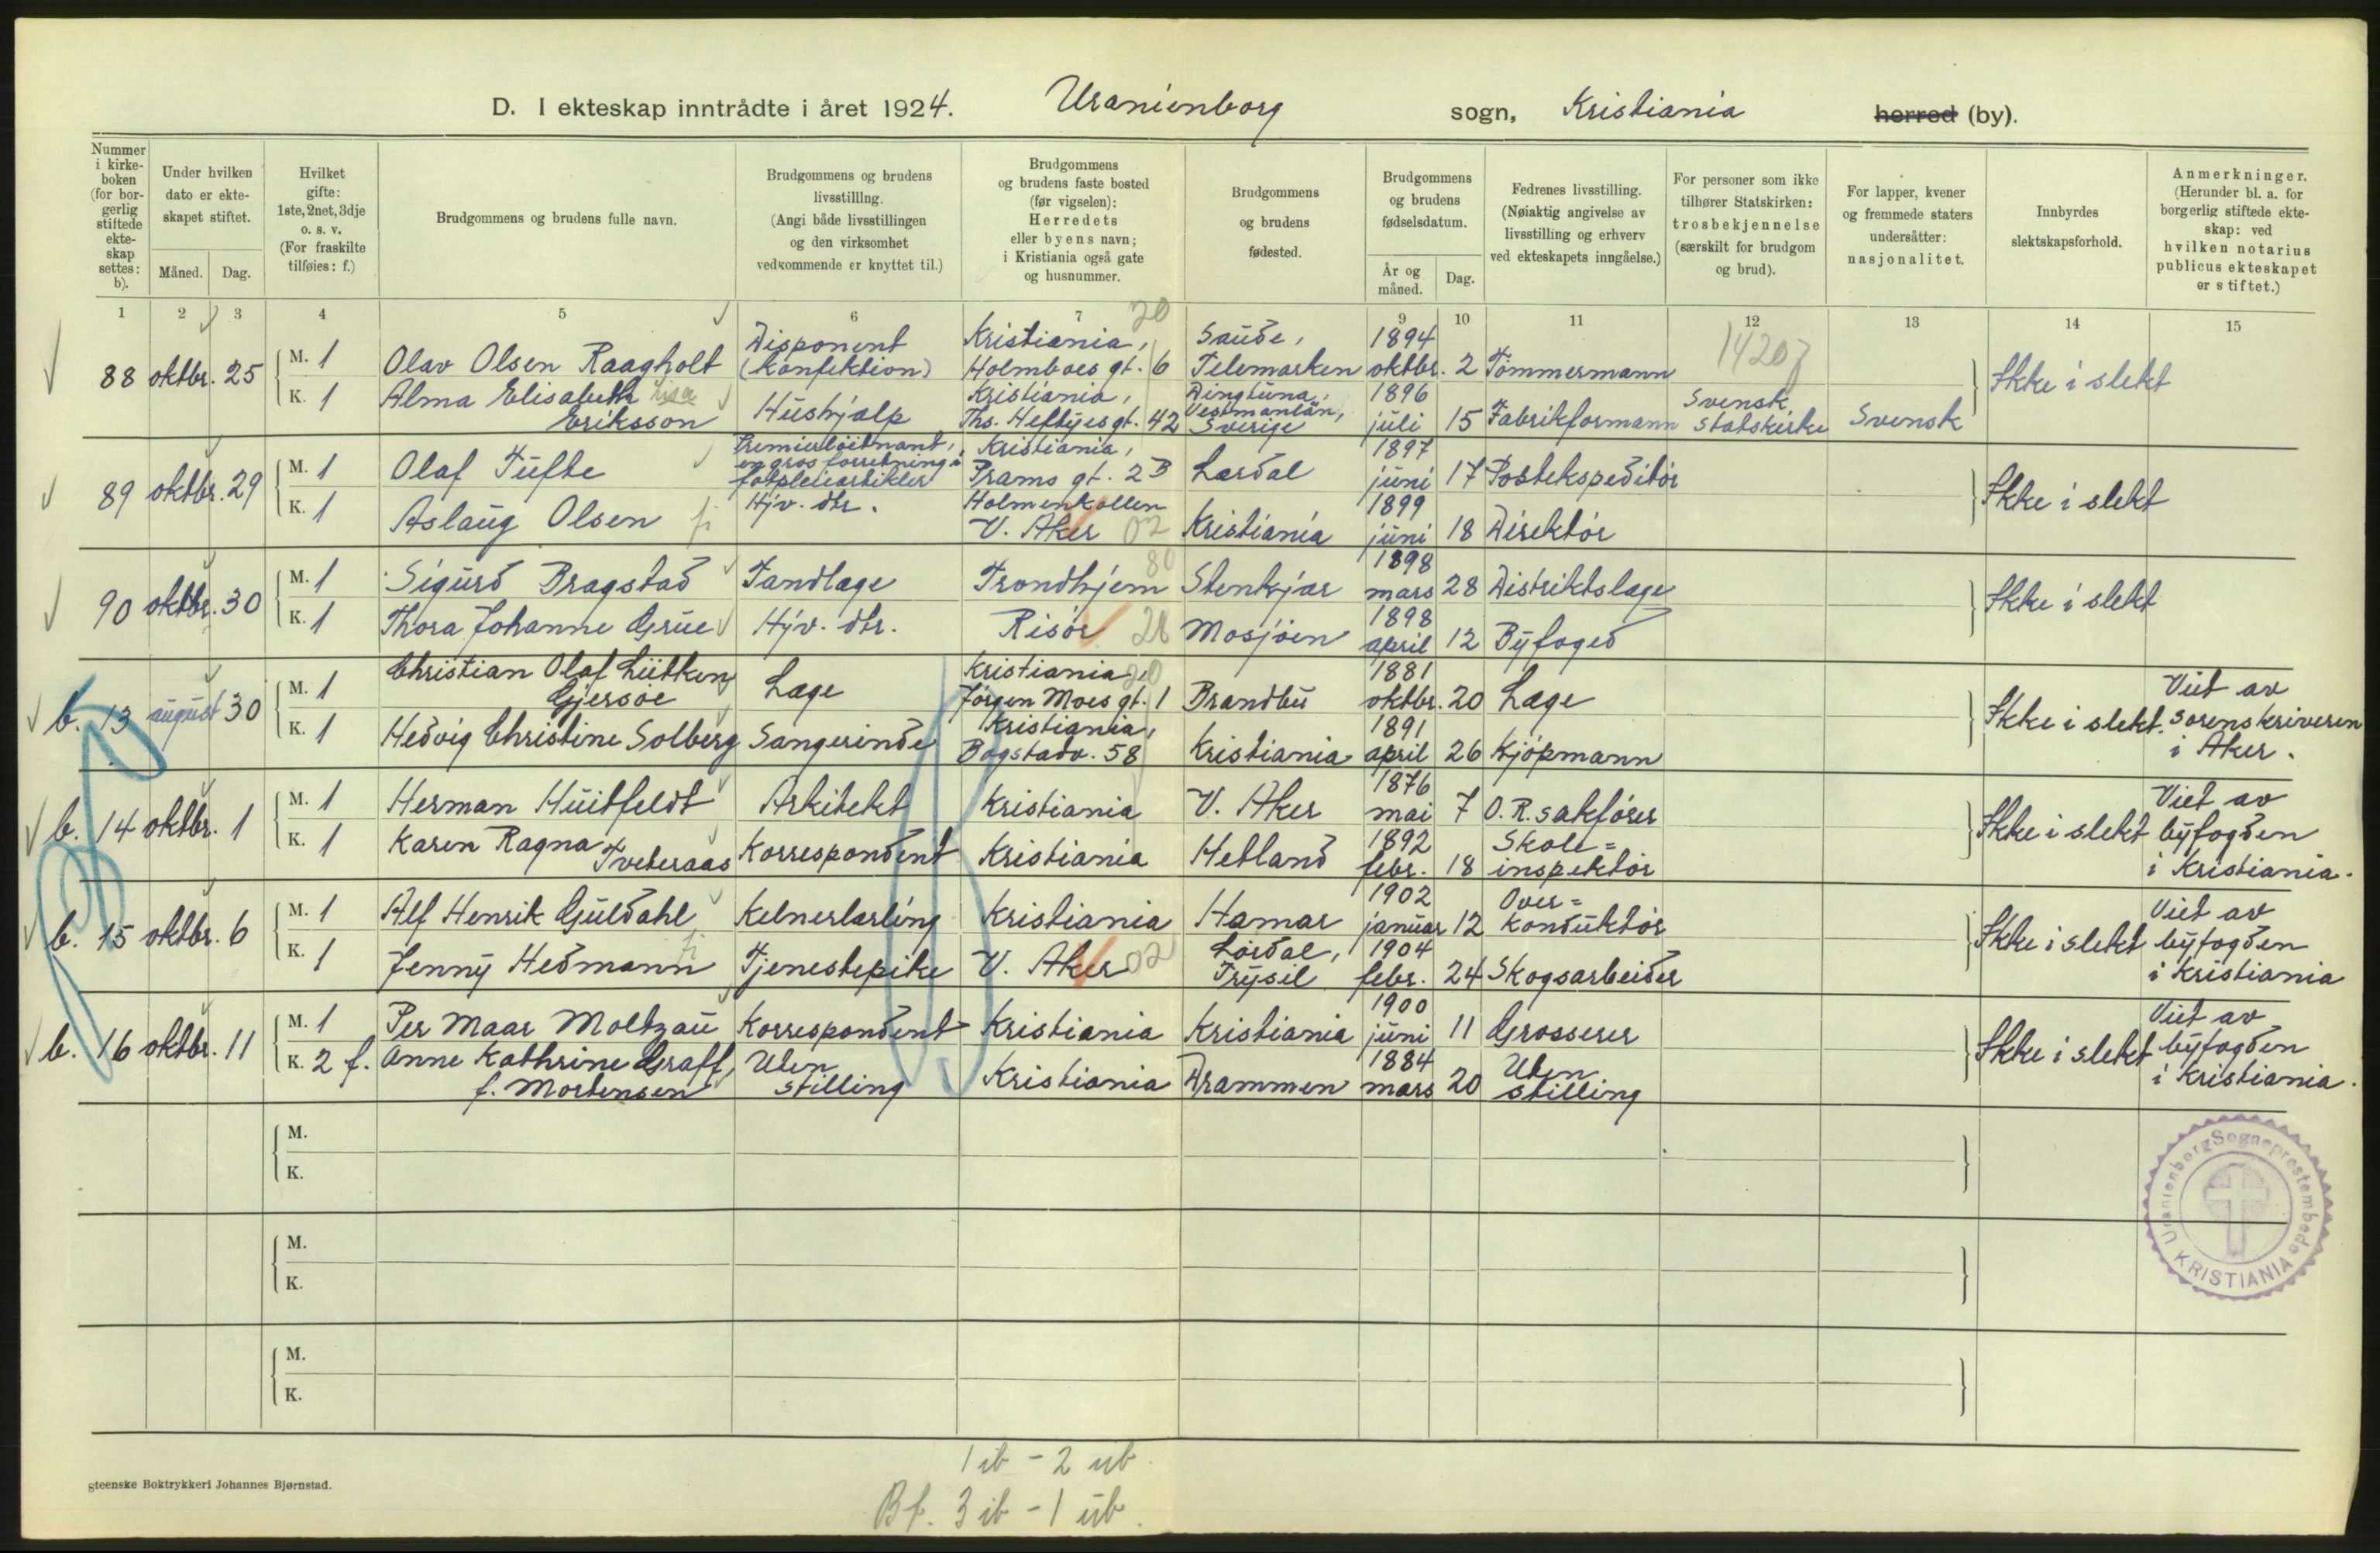 D. I ekteskap inntrådte i året 1924. Uranienborg sogn, Kristiania herred (by).
Nummer i kirke-boken (for bor-gerlig stiftede ekte-skap settes: b).
Under hvilken dato er ekte-skapet stiftet.
Måned. Dag.
Hvilket gifte: 1ste, 2net, 3dje o. s. v. (For fraskilte tilføies: f.)
Brudgommens og brudens fulle navn.
Brudgommens og brudens livsstilllng. (Angi både livsstillingen og den virksomhet vedkommende er knyttet til.)
Brudgommens og brudens faste bosted (før vigselen): Herredets eller byens navn; i Kristiania også gate og husnummer.
Brudgommens og brudens fødested.
Brudgommens og brudens fødselsdatum.
År og måned. Dag.
Fedrenes livsstilling. (Nøiaktig angivelse av livsstilling og erhverv ved ekteskapets inngåelse.)
For personer som ikke tilhører Statskirken: trosbekjennelse (særskilt for brudgom og brud).
For lapper, kvener og fremmede staters undersåtter: nasjonalitet.
Innbyrdes slektskapsforhold.
Anmerkninger. (Herunder bl. a. for borgerlig stiftede ekte-skap: ved hvilken notarius publicus ekteskapet er stiftet.)
1 2 3 4 5 6 7 9 10 11 12 13 14 15
20
88 oktbr. 25 M. 1 Olav Olsen Raagholt Disponent (Konfektion) Kristiania, Holmboes gt. 6 Saude, Telemarken 1894 oktbr. 2 Tømmermann 14207 Ikke i slekt
K. 1 Alma Elisabeth Eriksson Hushjalp Kristiania, Ths. Heftyes gt. 42 Dingtuna, Vestmanlän, Sverige 1896 juli 15 Fabrikformann Svensk Statskirke Svensk
89 oktbr. 29 M. 1 Olaf Tufte Premierløitnant, en gros forretning i fotpleieartikler Kristiania, Prams gt. 2B Lardal 1897 juni 17 Postekspeditør Ikke i slekt
K. 1 Aslaug Olsen Hjv. dtr. Holmenkollen V. Aker 02 Kristiania 1899 juni 18 Direktør
90 oktbr. 30 M. 1 Sigurd Bragstad Tandlæge Trondhjem 80 Stenkjær 1898 mars 28 Distriktslæge Ikke i slekt
K. 1 Thora Johanne Grue Hjv. dtr. Risør Mosjøen 1898 april 12 Byfoged
b. 13 august 30 M. 1 Christian Olaf Lütken Gjersøe Læge Kristiania, Jørgen Moes gt. 1 20 Brandbu 1881 oktbr. 20 Læge Ikke i slekt. Viet av sorenskriveren i Aker.
K. 1 Hedvig Christine Solberg Sangerinde Kristiania, Bogstadv. 58 Kristiania 1891 april 26 Kjøpmann
b. 14 oktbr. 1 M. 1 Herman Huitfeldt Arkitekt Kristiania V. Aker 1876 mai 7 O. R. sakfører Ikke i slekt Viet av byfogden i Kristiania.
K. 1 Karen Ragna Tveteraas Korrespondent Kristiania Hetland 1892 febr. 18 Skole=inspektør
b. 15 oktbr. 6 M. 1 Alf Henrik Guldahl Kelnerlærling Kristiania Hamar 1902 januar 12 Over=konduktør Ikke i slekt Viet av byfogden i Kristiania
K. 1 Jenny Hedmann Tjenestepike V. Aker 02 Lørdal, Trysil 1904 febr. 24 Skogsarbeider
b. 16 oktbr. 11 M. 1 Per Maar Moltzau Korrespondent Kristiania Kristiania 1900 juni 11 Grosserer Ikke i slekt Viet av byfogden i Kristiania.
K. 2 f. Anne Kathrine Graff, f. Mortensen Uten stilling Kristiania Drammen 1884 mars 20 Uten stilling
M.
K.
M.
K.
M.
K.
Uranienborg Sogneprestembede KRISTIANIA
1 ib - 2 ub.
Bf. 3 ib - 1 ub.
steenske Boktrykkeri Johannes Bjørnstad.